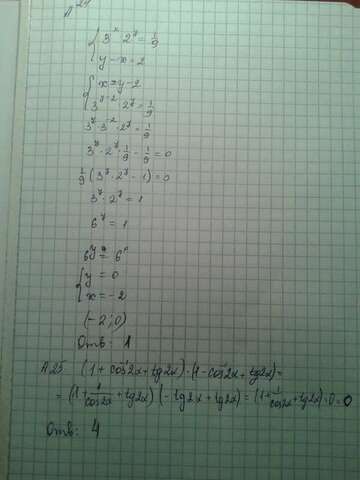 А24
{ 3^x · 2^y = 1/9
y - x = 2
{ x = y - 2
3^(y-2) · 2^y = 1/9
3^y · 3^-2 · 2^y = 1/9
3^y · 2^y · 1/9 - 1/9 = 0
1/9 (3^y · 2^y - 1) = 0
3^y · 2^y = 1
6^y = 1
6^y = 6^0
{ y = 0
x = -2
(-2; 0)
Отв: 1
А25 (1 + cos^-1 2x + tg2x) · (1 - cos^-1 2x + tg2x) =
= (1 + 1/cos2x + tg2x) (-tg2x + tg2x) = (1 + 1/cos2x + tg2x) · 0 = 0
Отв: 4